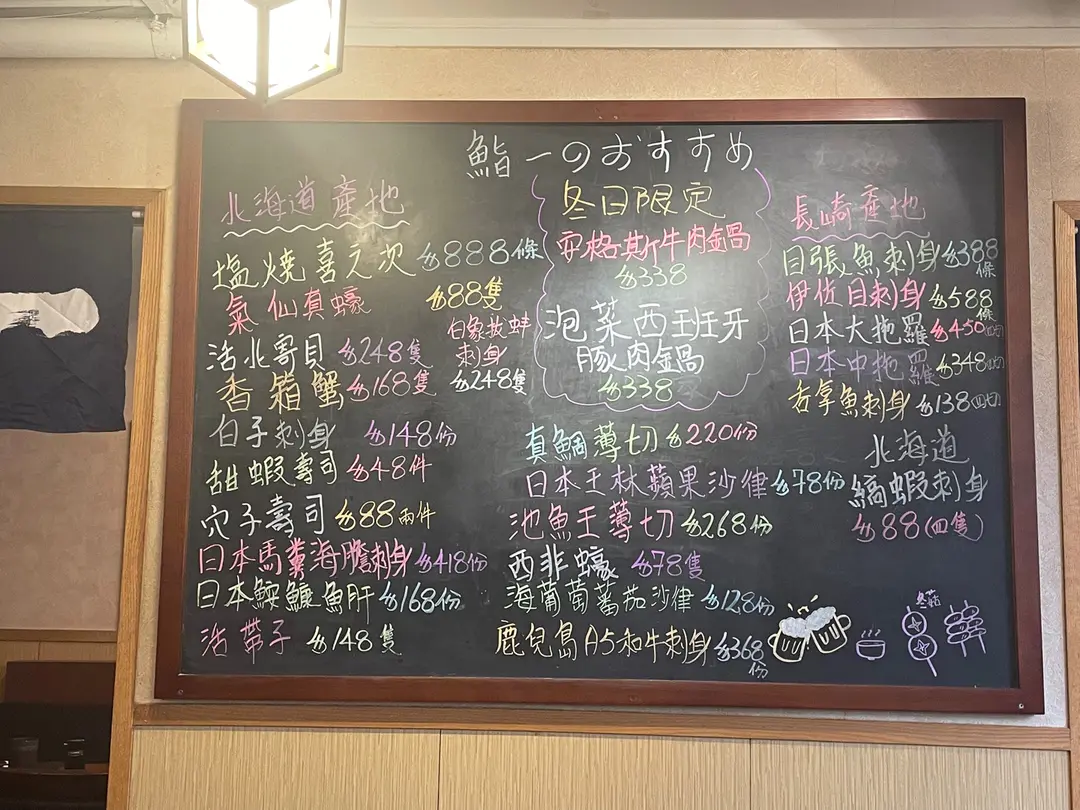 鮨一のおすすめ
北海道產地
塩燒喜之次 $888條
氣仙真蠔 $88隻
活北寄貝 $248隻
白象拔蚌
刺身
$248隻
香箱蟹 $168隻
白子刺身 $148份
甜蝦壽司 $48件
穴子壽司 $88兩件
日本馬糞海膽刺身 $418份
日本鮟鱇魚肝 $168份
活帶子 $148隻
冬日限定
安格斯牛肉鍋
$338
泡菜西班牙
豚肉鍋
$338
真鯛薄切 $220份
日本王林蘋果沙律 $78份
池魚王薄切 $268份
西非蠔 $78隻
海葡萄蕃茄沙律 $128份
鹿兒島A5和牛刺身 $368
份
長崎產地
目張魚刺身 $388
條
伊佐目刺身 $588
條
日本大拖羅 $450(四切)
日本中拖羅 $348(四切)
舌拿魚刺身 $138(四切)
北海道
縞蝦刺身
$88(四隻)
冬菇